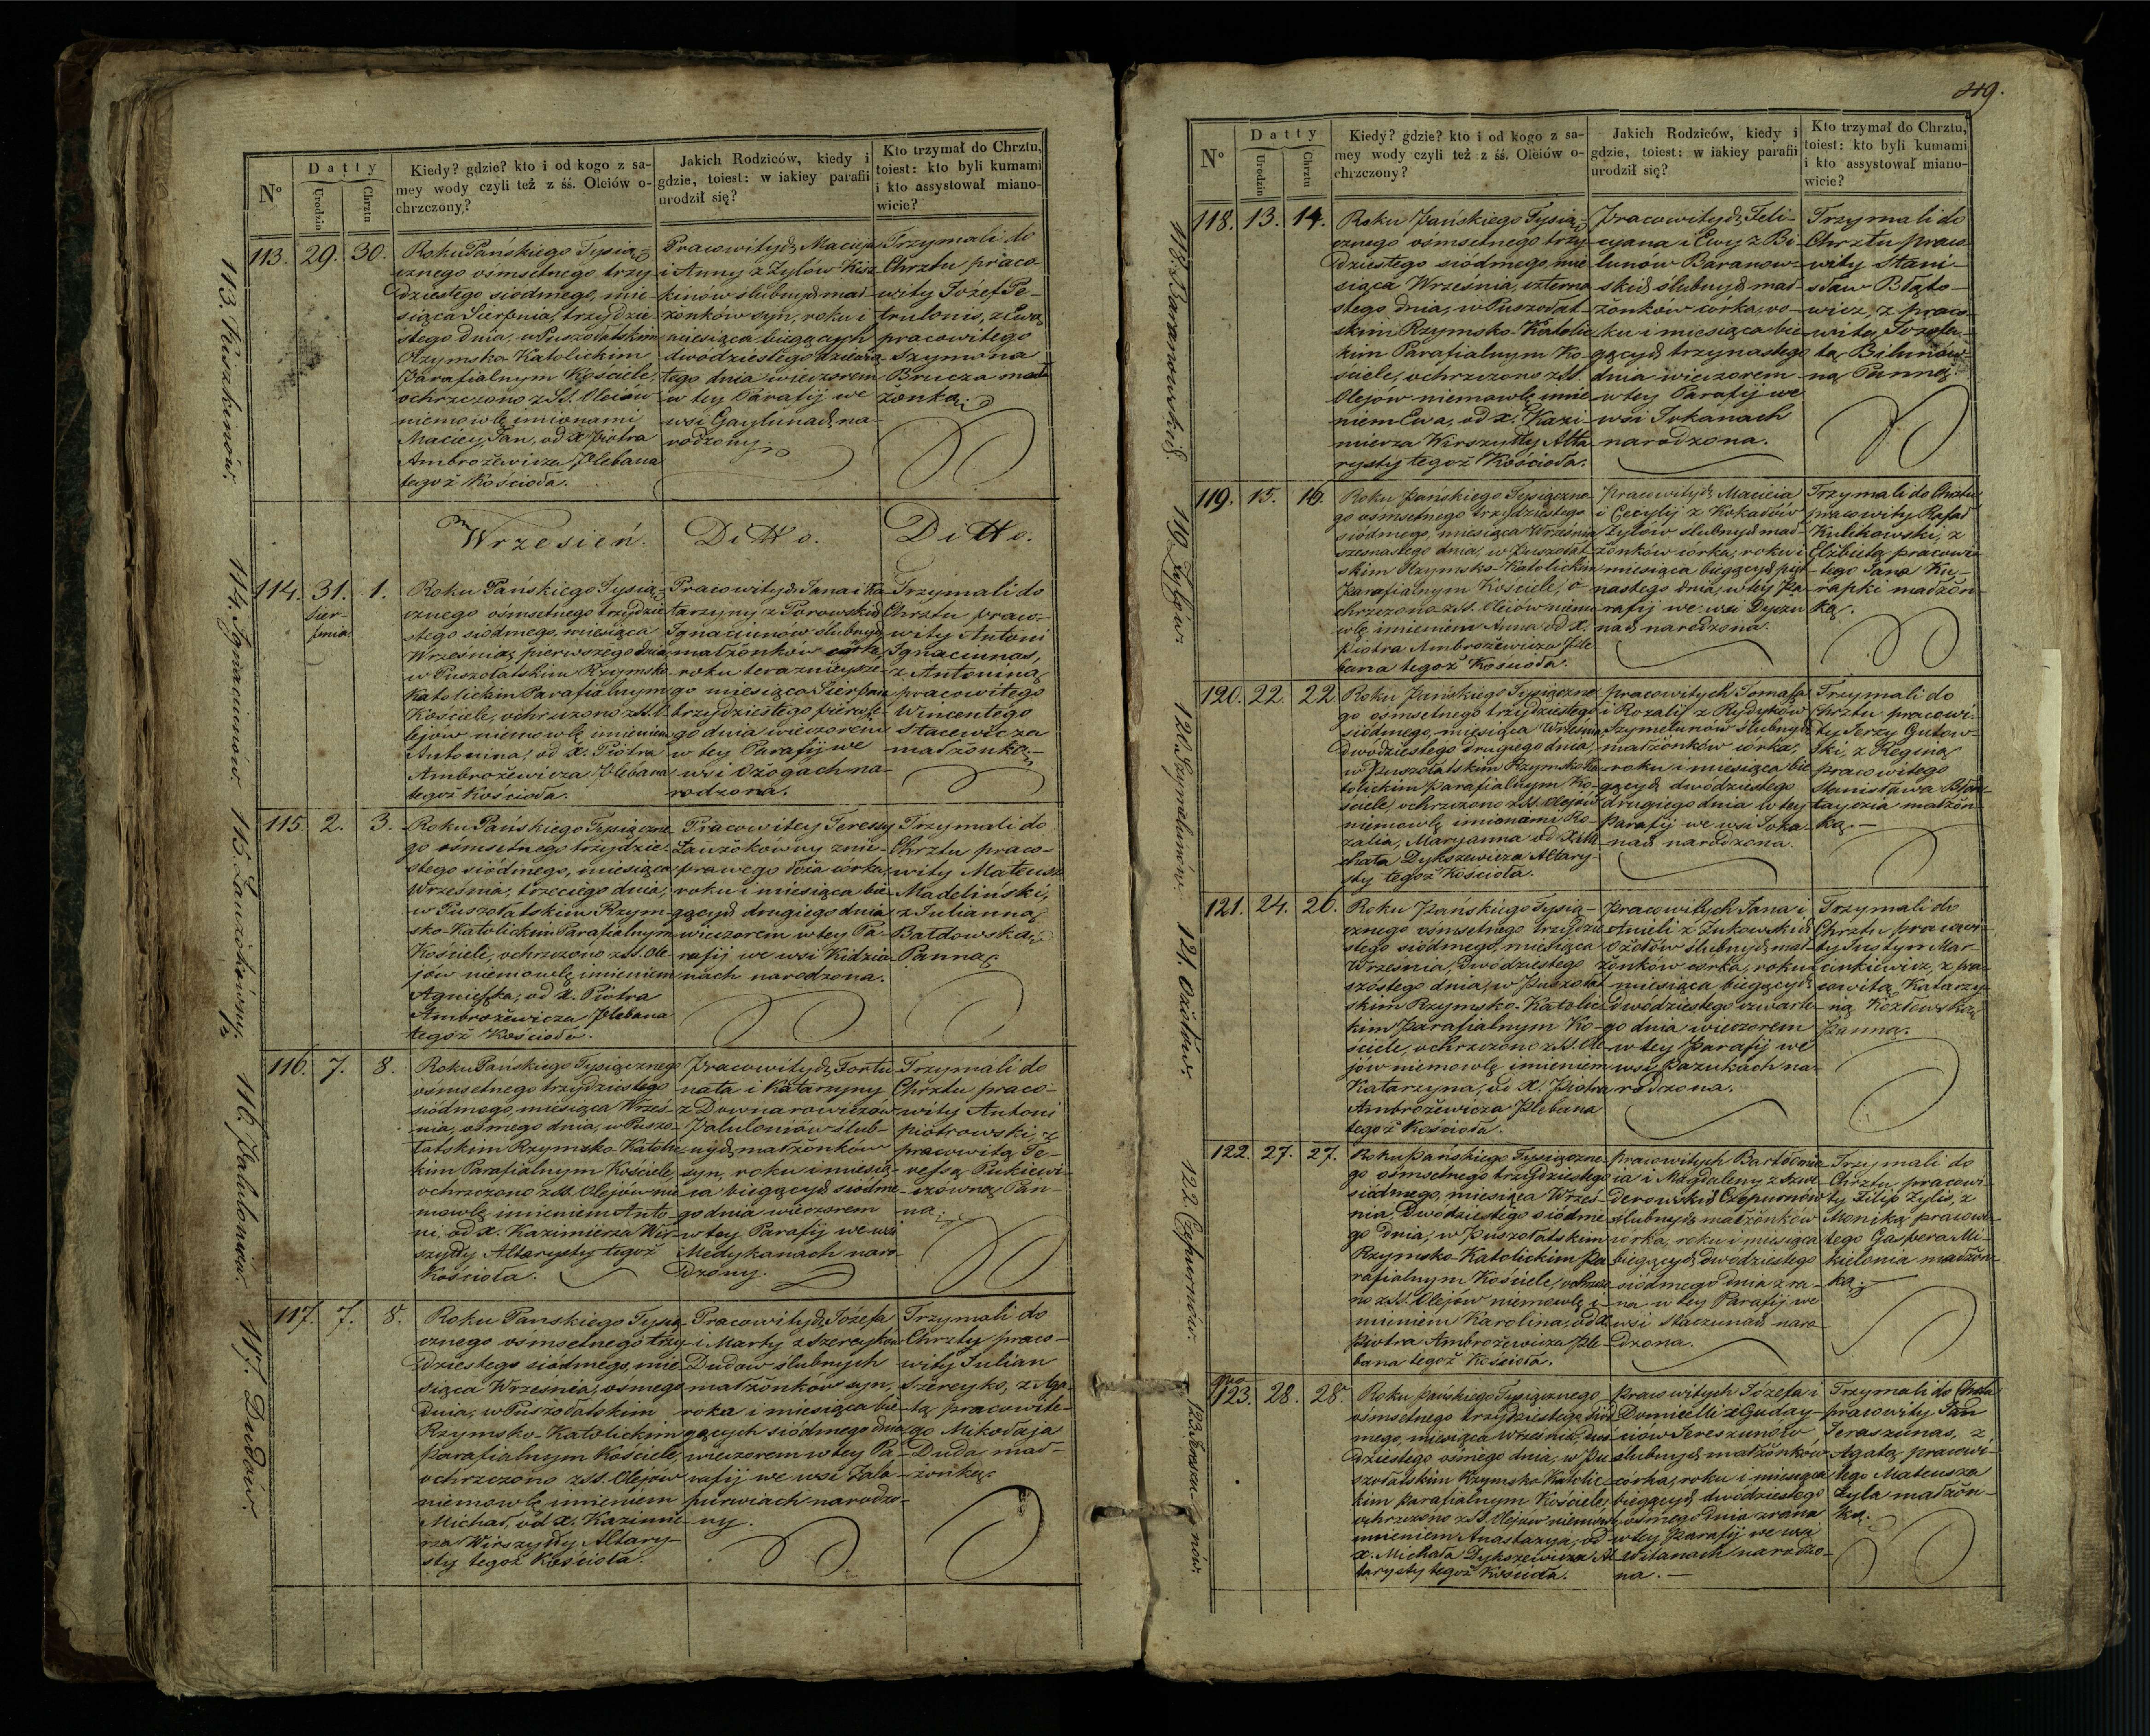 N°
Datty
Urodzin
Chrztu
Kiedy? gdzie? kto i od kogo z sa-
mey wody czyli też z śś. Oleiów o-
chrzczony?
Jakich Rodziców, kiedy i
gdzie, toiest: w iakiey parafii
urodził się?
Kto trzymał do Chrztu,
toiest: kto byli kumami
i kto assystował miano-
wicie?
113. Kiszkinów.
113. 29. 30.
Roku Pańskiego Tysią-
cznego ośmsetnego trzy-
dziestego siódmego, mie-
siąca Sierpnia, trzydzie-
stego dnia, w Puszołatskim
Rzymsko Katolickim
Parafialnym Kościele,
ochrzczono z SS. Oleiów
niemowlę imionami
Maciey, Jan, od X Piotra
Ambrożewicza Plebana
tegoż Kościoła.
Pracowitych Macieja
i Anny z Zylów Kisz-
kinów ślubnych mał-
żonków syn, roku i
miesiąca biegących
dwódziestego dziewią-
tego dnia wieczorem
w tey Parafij we
wsi Gaylunach na-
rodzony.
Trzymali do
Chrztu praco-
wity Józef Pe-
trulonis, z Ewą
pracowitego
Szymona
Brucza mał-
żonką.
Wrzesień. Ditto. Ditto.
114. Ignaciunów
114. 31. 1.
Sier-
pnia
Roku Pańskiego Tysią-
cznego ośmsetnego trzydzie-
stego siódmego, miesiąca
Września, pierwszego dnia,
w Puszołatskim Rzymsko
Katolickim Parafialnym
Kościele, ochrzczono z SS. O-
lejów niemowlę imieniem
Antonina, od X. Piotra
Ambrożewicza Plebana
tegoż Kościoła.
Pracowitych Jana i Ka-
tarzyny z Parowskich
Ignaciunów ślubnych
małżonków córka,
roku teraznieysze-
go miesiąca Sierpnia
trzydziestego pierwsze-
go dnia wieczorem
w tey Parafij we
wsi Ożogach na-
rodzona.
Trzymali do
Chrztu praco-
wity Antoni
Ignaciunas,
z Antoniną
pracowitego
Wincentego
Stacewicza
małżonką.
115. Łaużokowny.
115. 2. 3.
Roku Pańskiego Tysiączne-
go ośmsetnego trzydzie-
stego siódmego, miesiąca
Września, trzeciego dnia,
w Puszołatskim Rzym-
sko-Katolickim Parafialnym
Kościele, ochrzczono z SS. Ole-
jów niemowlę imieniem
Agnieszka, od X. Piotra
Ambrożewicza Plebana
tegoż Kościoła.
Pracowitey Teressy
Łaużokowny znie-
prawego łoża córka,
roku i miesiąca bie-
gących drugiego dnia
wieczorem w tey Pa-
rafij we wsi Kidzio-
nach narodzona.
Trzymali do
Chrztu praco-
wity Mateusz
Madeliński,
z Julianną
Bałdowską
Panną.
116. Palulonów.
116. 7. 8.
Roku Pańskiego Tysiącznego
ośmsetnego trzydziestego
siódmego, miesiąca Wrześ-
nia, ośmego dnia, w Puszo-
łatskim Rzymsko-Katolic-
kim Parafialnym Kościele,
ochrzczono z SS. Olejów nie-
mowlę imieniem Anto-
ni, od X. Kazimierza Wir-
szyłły Altarysty tegoż
Kościoła.
Pracowitych Fortu-
nata i Katarzyny
z Downarowiczów
Paluloniów ślub-
nych małżonków
syn, roku i miesią-
ca biegących siódme-
go dnia wieczorem
w tey Parafij we wsi
Medykanach naro-
dzony.
Trzymali do
Chrztu praco-
wity Antoni
Piotrowski, z
pracowitą Te-
ressą Pukiewi-
czówną Pan-
ną.
117. Dudów.
117. 7. 8.
Roku Panskiego Tysią-
cznego ośmsetnego trzy-
dziestego siódmego, mie-
siąca Września, ośmego
dnia, w Puszołatskim
Rzymsko-Katolickim
Parafialnym Kościele,
ochrzczono z SS. Olejow
niemowlę imieniem
Michał, od X. Kazimie-
rza Wirszyłły Altary-
sty tegoż Kościoła.
Pracowitych Józefa
i Marty z Szereyków
Dudow ślubnych
małżonków syn,
roku i miesiąca bie-
gących siódmego dnia
wieczorem w tey Pa-
rafij we wsi Zala-
purwiach narodzo-
ny.
Trzymali do
Chrztu praco-
wity Julian
Szereyko, z Aga-
tą pracowite-
go Mikołaja
Duda mał-
żonką.
419.
N°
Datty
Urodzin
Chrztu
Kiedy? gdzie? kto i od kogo z sa-
mey wody czyli też z śś. Oleiów o-
chrzczony?
Jakich Rodziców, kiedy i
gdzie, toiest: w iakiey parafii
urodził się?
Kto trzymał do Chrztu,
toiest: kto byli kumami
i kto assystował miano-
wicie?
118. Baranowskich.
118. 13. 14.
Roku Pańskiego Tysią-
cznego ośmsetnego trzy-
dziestego siódmego, mie-
siąca Września, czterna-
stego dnia, w Puszołat-
skim Rzymsko-Katolic-
kim Parafialnym Ko-
ściele, ochrzczono z SS.
Olejow niemowlę imie-
niem Ewa, od X. Kazi-
mierza Wirszyłły Alta-
rysty tegoż Kościoła.
Pracowitych Feli-
cyana i Ewy z Bi-
lunów Baranow-
skich ślubnych mał-
żonków córka, ro-
ku i miesiąca bie-
gących trzynastego
dnia wieczorem
w tey Parafij we
wsi Jokanach
narodzona.
Trzymali do
Chrztu praco-
wity Stani-
sław Błąto-
wicz, z praco-
witą Jozefa-
tą Bilunów-
ną Panną.
119. Zylów.
119. 15. 16.
Roku Pańskiego Tysiączne-
go ośmsetnego trzydziestego
siódmego, miesiąca Września
szesnastego dnia, w Puszołat-
skim Rzymsko-Katolickim
Parafialnym Kościele, o-
chrzczono z SS. Olejów niemo-
wlę imieniem Anna od X.
Piotra Ambrożewicza Ple-
bana tegoż Kościoła.
Pracowitych Macieia
i Cecylij z Kokadów
Zylów ślubnych mał-
żonków córka, roku i
miesiąca biegących pięt-
nastego dnia, w tey Pa-
rafij we wsi Dyczu-
nach narodzona.
Trzymali do Chrztu
pracowity Rafał
Kulikowski, z
Elżbietą pracowi-
tego Jana Ku-
rapki małżon-
ką.
120. Szymelunów.
120. 22. 22.
Roku Pańskiego Tysiączne-
go ośmsetnego trzydziestego
siódmego, miesiąca Września,
dwódziestego drugiego dnia,
w Puszołatskim Rzymsko Ka-
tolickim Parafialnym Ko-
ściele, ochrzczono z SS. Olejów
niemowlę imionami Ro-
zalia, Maryanna od X. Mi-
chała Dykszewicza Altary-
sty tegoż Kościoła.
Pracowitych Tomasza
i Rozalij z Rydyków
Szymelunów ślubnych
małżonków córka,
roku i miesiąca bie-
gących dwódziestego
drugiego dnia w tey
Parafij we wsi Joka-
nach narodzona.
Trzymali do
Chrztu pracowi-
ty Jerzy Gutow-
ski, z Reginą
pracowitego
Stanisława
małżon-
ką.
121. Ożołów
121. 24. 26.
Roku Pańskiego Tysią-
cznego ośmsetnego trzydzie-
stego siódmego, miesiąca
Września, dwódziestego
szóstego dnia, w Puszołat-
skim Rzymsko-Katolic-
kim Parafialnym Ko-
ściele, ochrzczono z SS. Ole-
jów niemowlę imieniem
Katarzyna, od X. Piotra
Ambrożewicza Plebana
tegoż Kościoła.
Pracowitych Jana i
Anieli z Żukowskich
Ożołów ślubnych mał-
żonków córka, roku i
miesiąca biegących
dwódziestego czwarte-
go dnia wieczorem
w tey Parafij we
wsi Pazukach na-
rodzona.
Trzymali do
Chrztu pracowi-
ty Justym Mar-
cinkiewicz, z pra-
cowitą Katarzy-
ną Kozłowską
Panną.
122. Czepurnów.
122. 27. 27.
Roku Pańskiego Tysiączne-
go ośmsetnego trzydziestego
siódmego, miesiąca Wrześ-
nia, dwódziestego siódme-
go dnia, w Puszołatskim
Rzymsko-Katolickim Pa-
rafialnym Kościele, ochrzczo-
no z SS. Olejów niemowlę i-
mieniem Karolina, od X.
Piotra Ambrożewicza Ple-
bana tegoż Kościoła.
Pracowitych Bartłomie-
ia i Magdaleny z Szwe-
derowskich Czepurnów
ślubnych małżonków
córka, roku i miesiąca
biegących dwódziestego
siódmego dnia z ra-
na w tey Parafij we
wsi Staczunach naro-
dzona.
Trzymali do
Chrztu pracowi-
ty Filip Zylis, z
Moniką pracowi-
tego Gaspera Mi-
kielonia małżon-
ką.
123. Teraszu-nów.
123. 28. 28.
Roku Pańskiego Tysiącznego
ośmsetnego trzydziestego siód-
mego, miesiąca Września, dwó-
dziestego ośmego dnia, w Pu-
szołatskim Rzymsko Katolic-
kim Parafialnym Kościele,
ochrzczono z SS. Olejow niemowlę
imieniem Anastazya, od
X. Michała Dykszewicza Al-
tarysty tegoż Kościoła.
Pracowitych Józefa i
Domicelli z Guday-
ciów Tereszunów
ślubnych małżonków
córka, roku i miesiąca
biegących dwódziestego
ośmego dnia zrana
w tey Parafij we wsi
Witanach narodzo-
na.
Trzymali do Chrztu
pracowity Jan
Teraszunas, z
Agatą pracowi-
tego Mateusza
Zyla małżon-
ką.